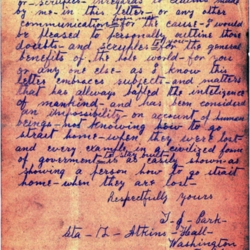 or scruples in regards to claims made
by me in this letter or any other
communication for the cause I would
be pleased to personally outline those
doubts and scruples for the general
benefits of the hole world for you
or any one else as I know this
letter embraces subjects and matters
that has always baffled the inteligence
of mankind and has been consider
an impossibility on account of human
beings not knowing how to go
strait home when they were lost
and every example in a civilized form
of government as easily shown as
showing a person how to go strait
home when they are lost
Respectfully yours
T. J. Park
Sta. H. Atkins Hall
Washington